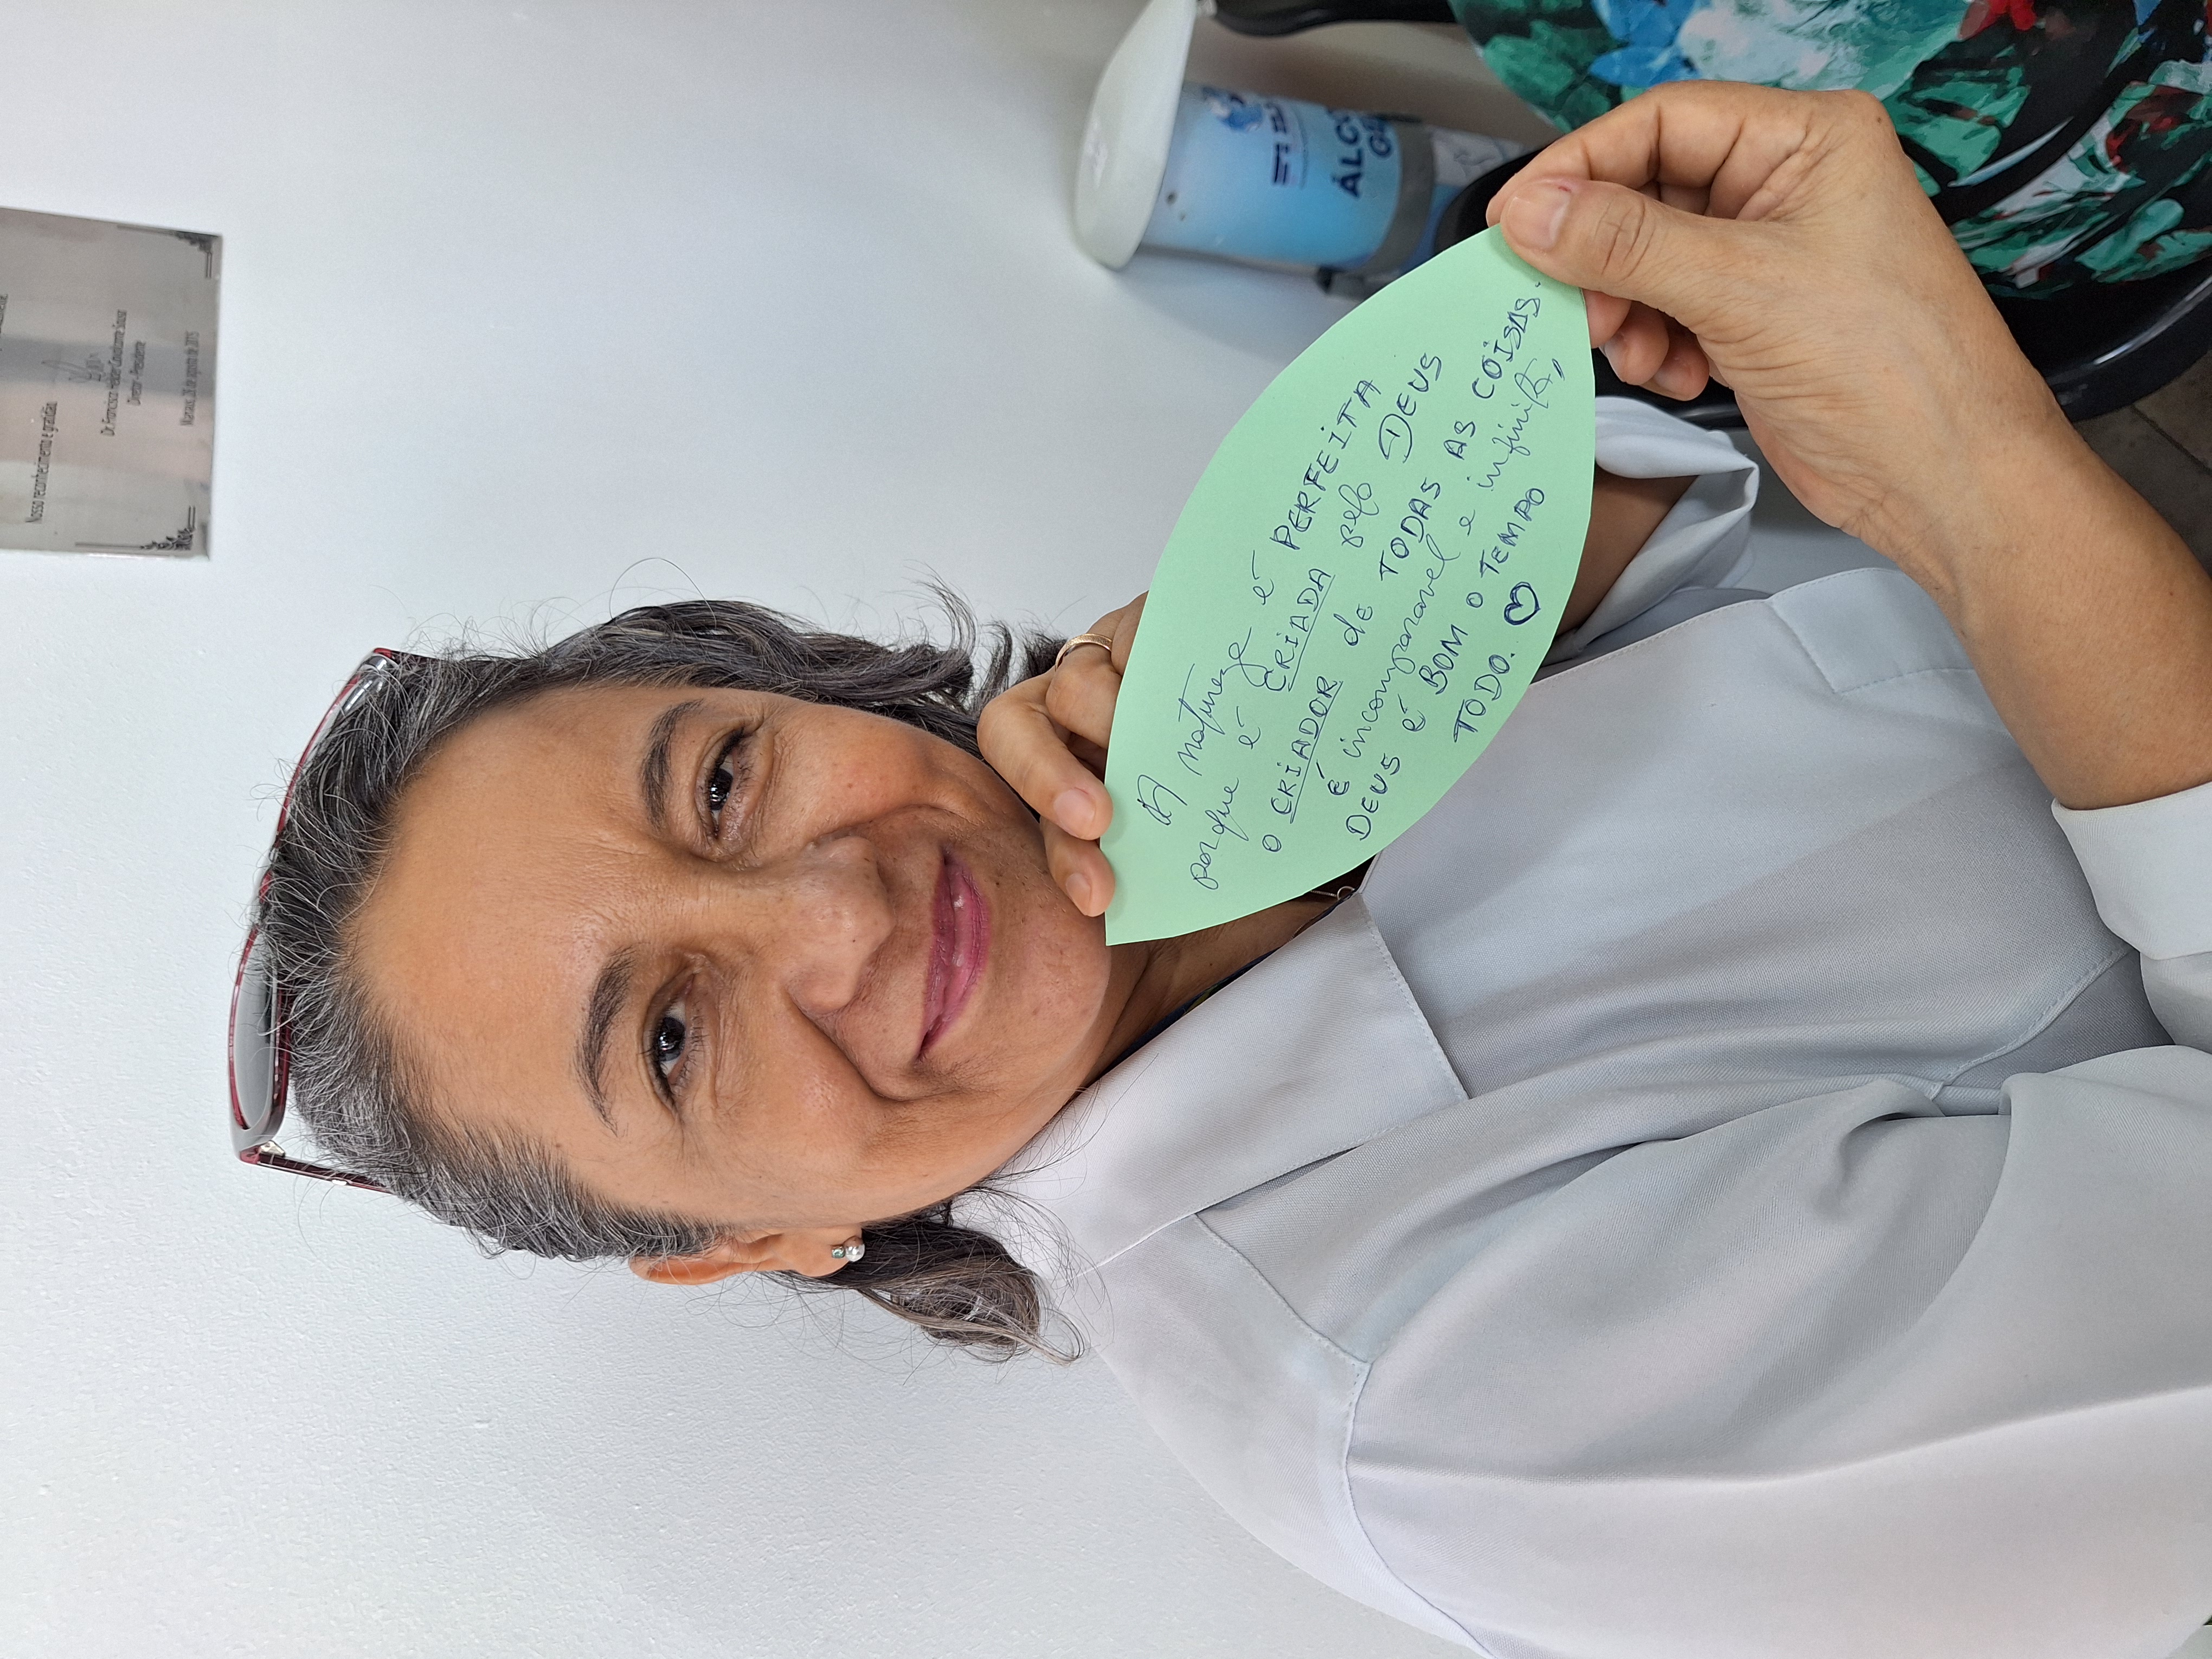 A natureza é PERFEITA
porque é CRIADA pelo DEUS
O CRIADOR de TODAS AS COISAS.
É incomparavel e infinito,
DEUS é BOM O TEMPO
TODO. ♡
Nosso reconhecimento e gratidão.
Dr. Francisco Helder Cavalcante Sousa
Diretor - Presidente
Manaus, 28 de agosto de 2015
ÁLCO